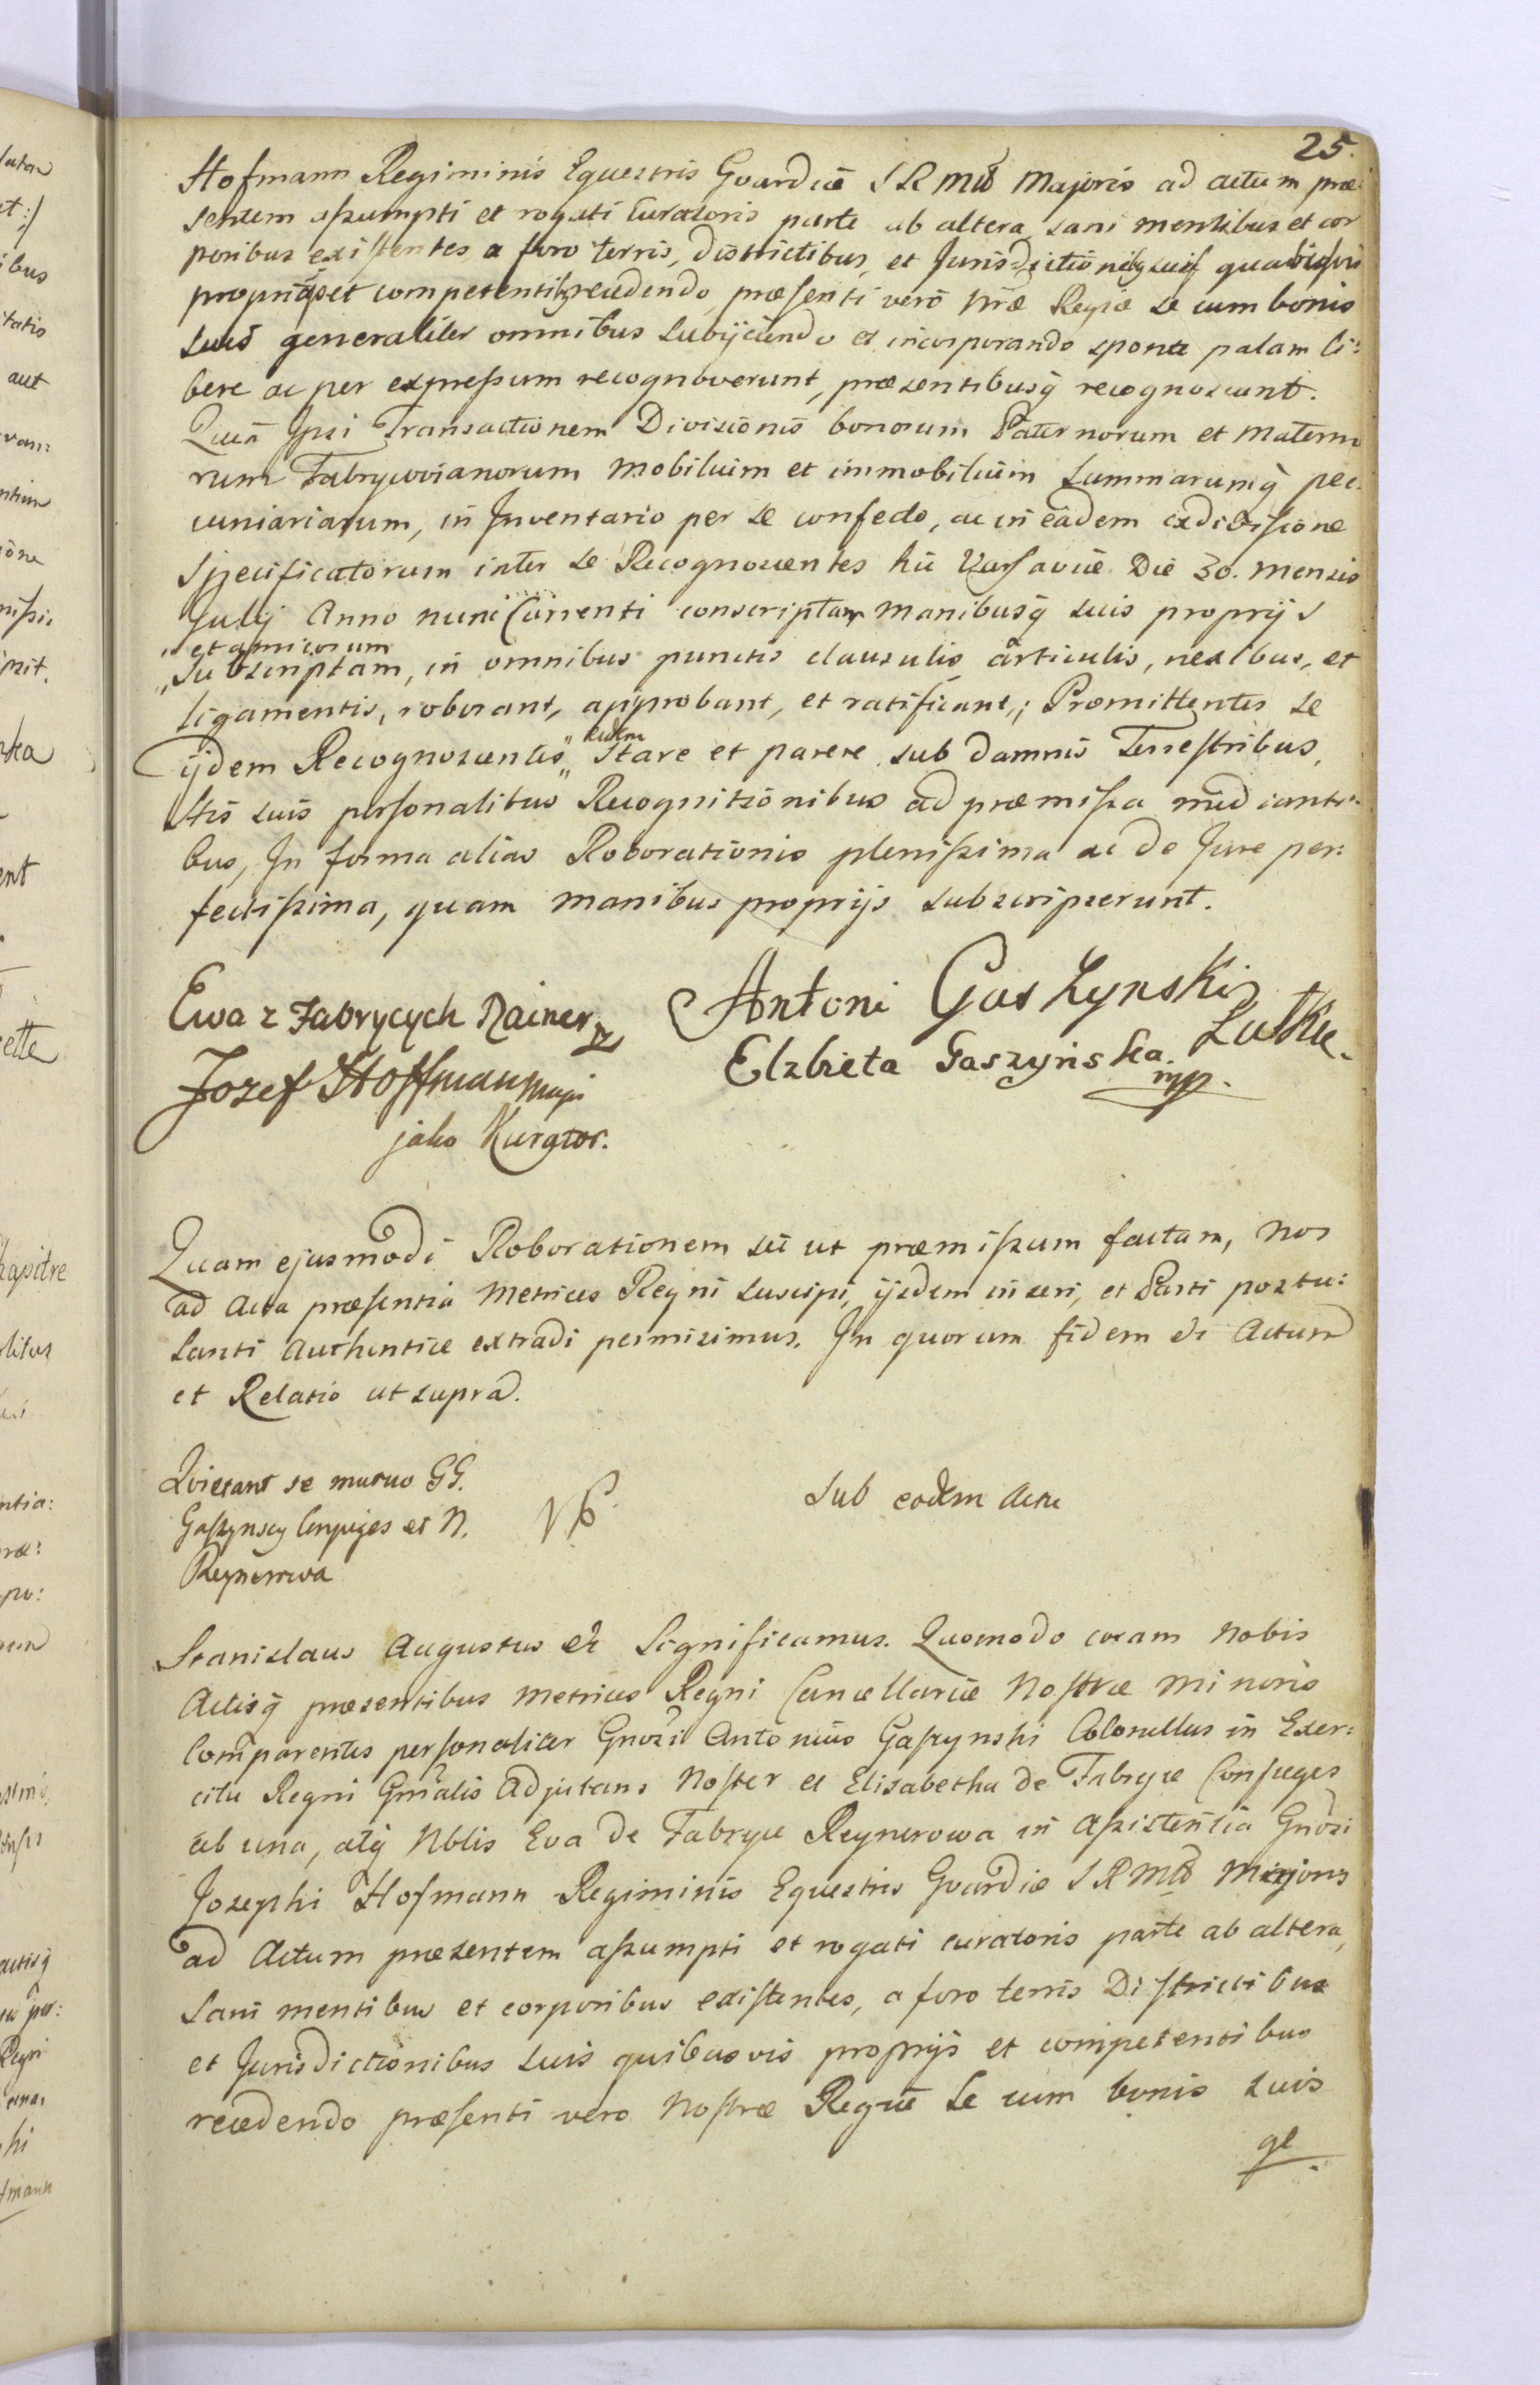 25.
Hofmann Regiminis Equestris Gvardiæ S R Mtis Majoris ad actum præ
sentem aſsumpti et rogati Curatoris parte ab altera, sani mentibus et cor
poribus exiſtentes, a foro terris, districtibus, et Jurisdictionibq suis quibusvis
proprijs et competentibq recedendo, præſenti verò nræ Regiæ se cum bonis
suis generaliter omnibus subijciendo et incorporando sponte palam li:
bere ac per expreſsum recognoverunt, præsentibusq̃ recognoscunt.
Quia Ipsi Transactionem Divisionis bonorum Paternorum et Materno
rum Fabrycovianorum mobilium et immobilium Summarumq̃ pec:
cuniariarum, in Inventario per se confecto, ac in eadem exdiviſione
Specificatorum inter se Recognoscentes hic Varſaviæ Die 30. Mensis
Julij Anno nunc Currenti conscriptam manibusq̃ suis proprijs
et amicorum
„Subscriptam, in omnibus punctis clausulis articulis, nexibus, et
ligamentis, roborant, approbant, et ratificant,; Promittentes se
ijdem Recognoscentes „ eidem Stare et parere sub damnis Terreſtribus,
Istis suis perſonalibus Recognitionibus ad præmiſsa medianti-
bus, In forma alias Roborationis pleniſsima ac de Jure per:
fectiſsima, quam manibus proprijs subscripserunt.
Ewa z Fabrycych Rainer
Antoni Gaszynski
Elzbieta Gaszyńska
mp.
Jozef Hoffman Maj
jako Kurator.
Quam ejusmodi Roborationem sic ut præmiſsum factam, nos
ad Acta præſentia Metrices Regni suscipi, ijsdem inseri, et Parti postu:
lanti Authentice extradi permisimus. In quorum fidem etc Actum
et Relatio ut supra.
Quietant se mutuo GG.
Gaſzynscy Conjuges et N.
Reynerowa
Sub eodem Actu
Stanislaus Augustus etc Significamus. Quomodo coram Nobis
Actisq̃ præsentibus Metrices Regni Cancellariæ Noſtræ Minoris
Comparentes perſonaliter Gnosi Antonius Gaſzynski Colonellus in Exer:
citu Regni Gnralis Adjutans Noſter et Elisabetha de Fabryce Conjuges
ab una, atq̃ Nblis Eva de Fabryce Reynerowa in Aſsistentia Gnosi
Josephi Hofmann Regiminis Equestris Gvardiæ S R Mtis Majoris
ad Actum præsentem aſsumpti et rogati curatoris parte ab altera,
Sani mentibus et corporibus exiſtentes, a foro terris Diſtrictibus
et Jurisdictionibus suis quibusvis proprijs et competentibus
recedendo præſenti vero Noſtræ Regiæ Se cum bonis suis
ge